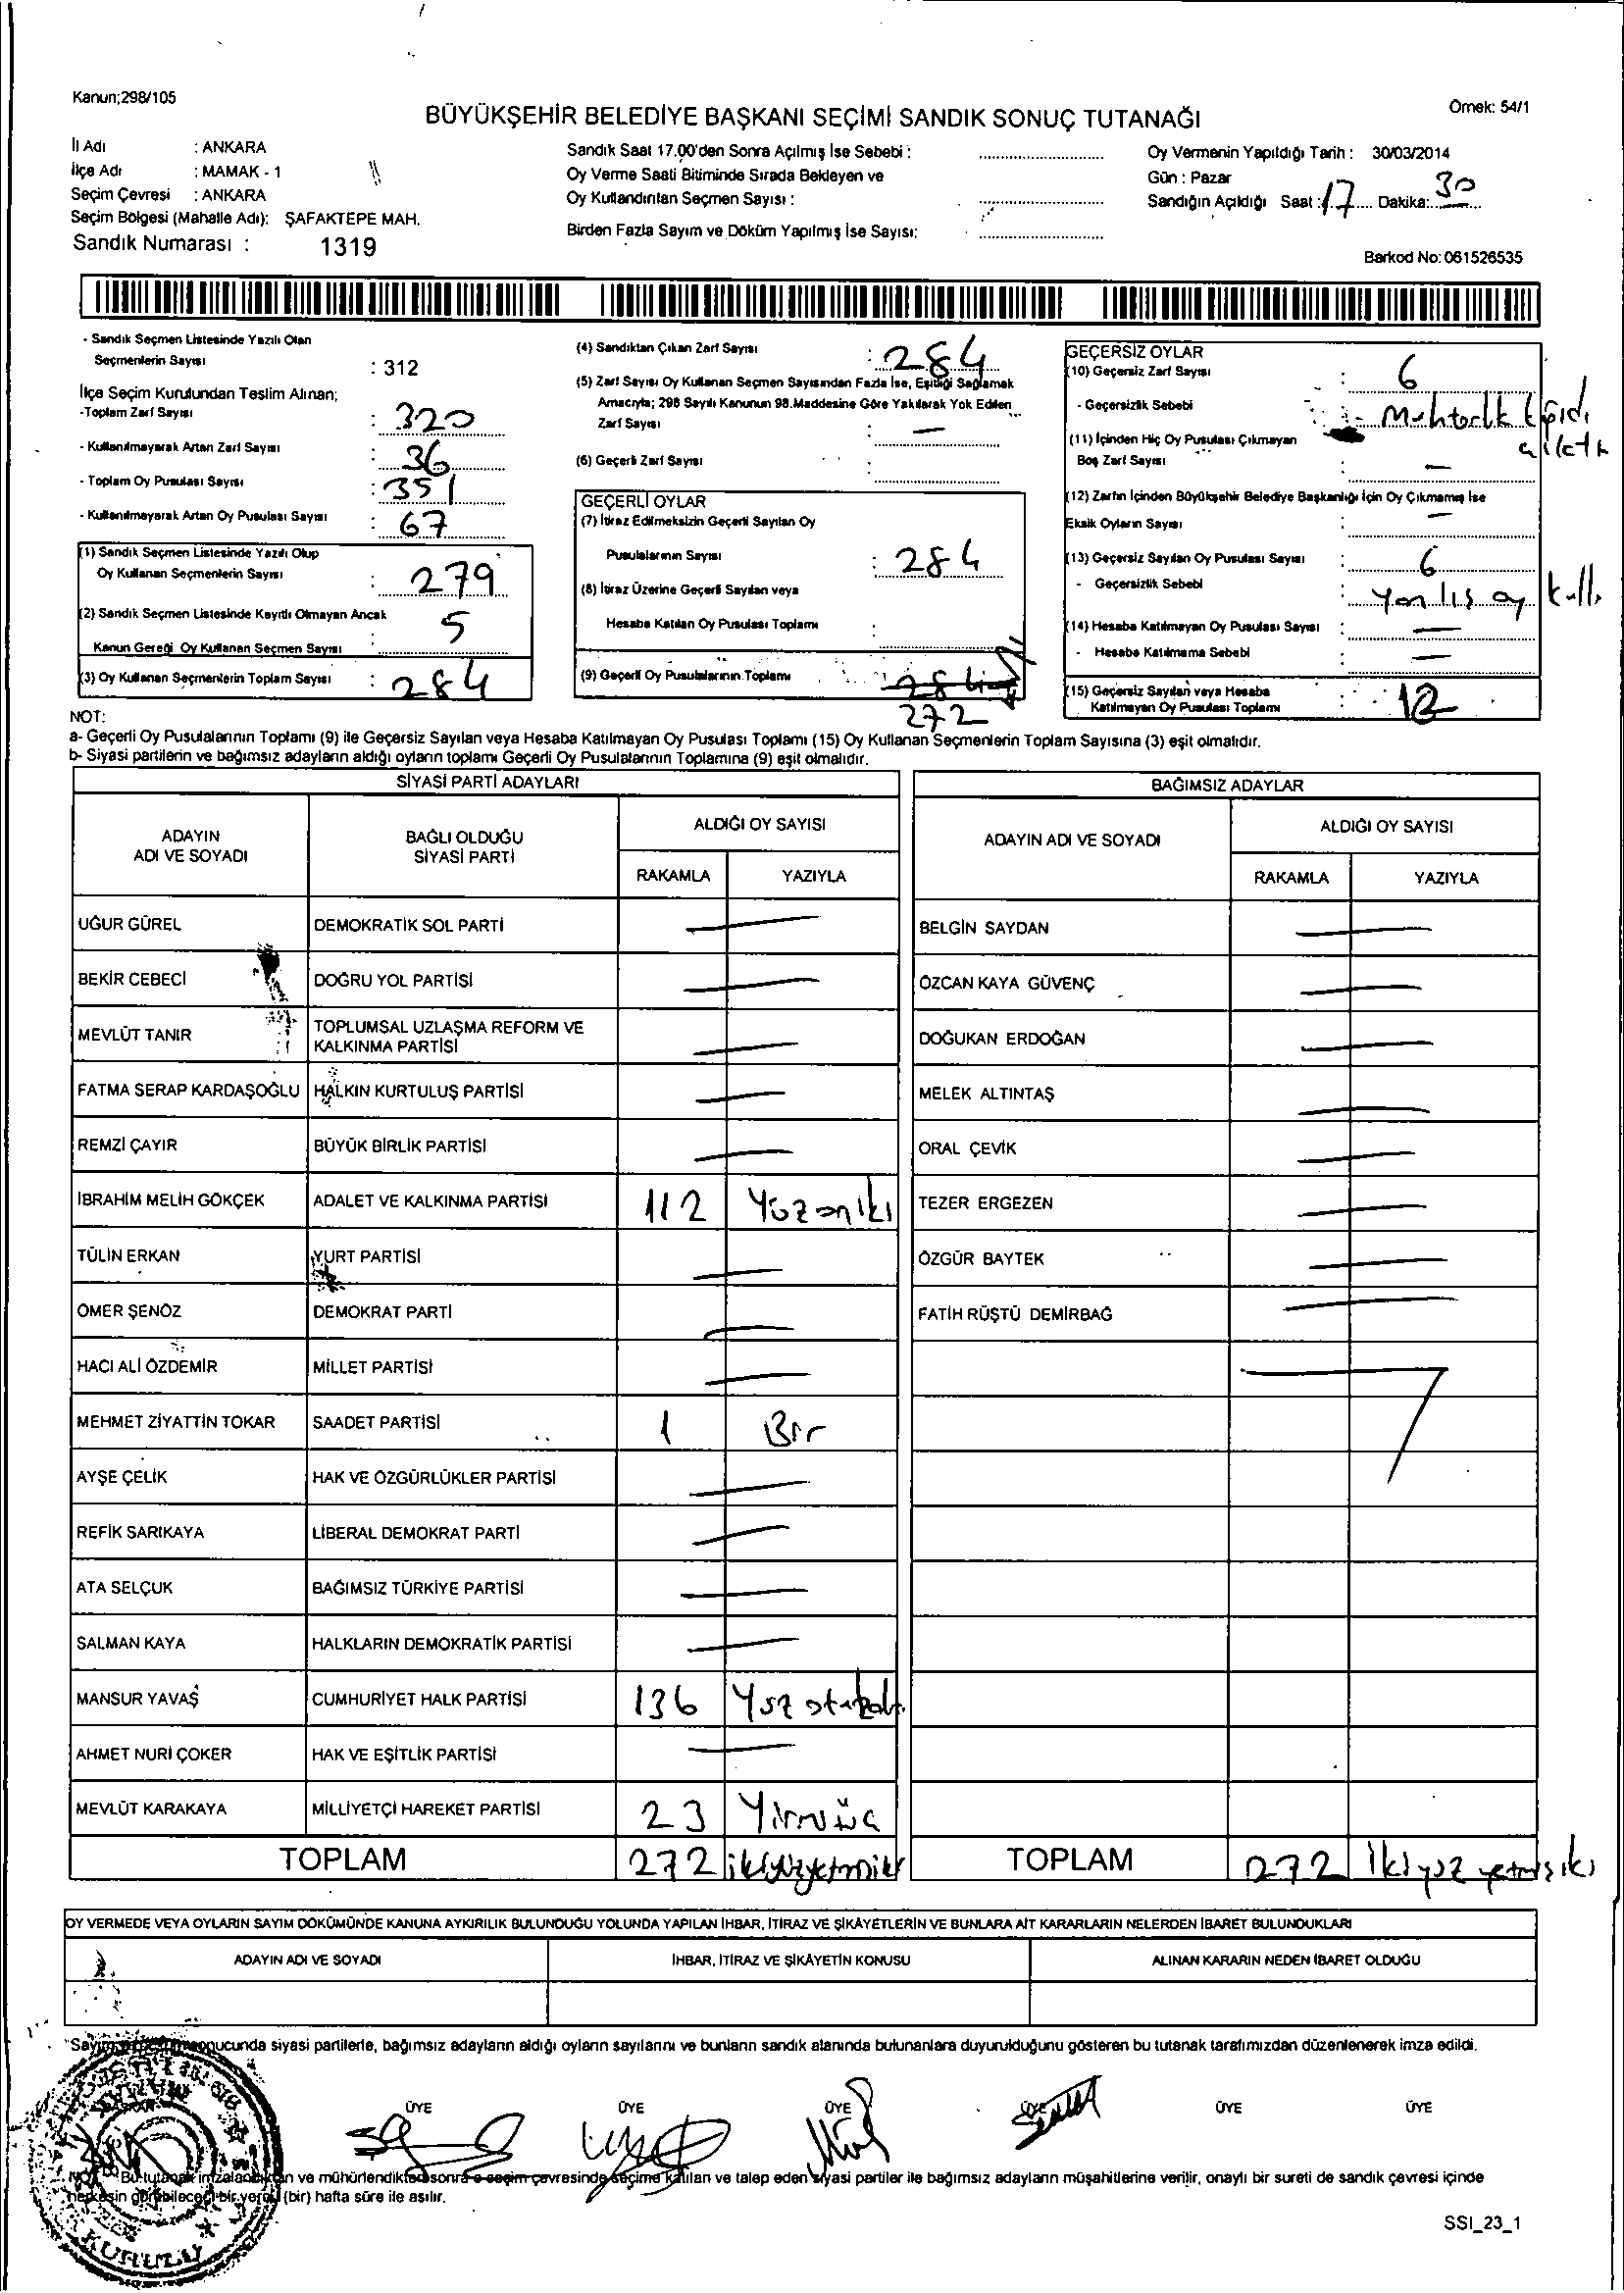 Kanun;298/105
Örnek: 54/1
BÜYÜKŞEHİR BELEDİYE BAŞKANI SEÇİMİ SANDIK SONUÇ TUTANAĞI
İl Adı : ANKARA
İlçe Adı : MAMAK - 1
Seçim Çevresi : ANKARA
Seçim Bölgesi (Mahalle Adı): ŞAFAKTEPE MAH.
Sandık Numarası : 1319
Sandık Saat 17.00'den Sonra Açılmış İse Sebebi :
Oy Verme Saati Bitiminde Sırada Bekleyen ve
Oy Kullandırılan Seçmen Sayısı :
Birden Fazla Sayım ve Döküm Yapılmış İse Sayısı:
Oy Vermenin Yapıldığı Tarih : 30/03/2014
Gün : Pazar
Sandığın Açıldığı Saat : 17 Dakika: 30
Barkod No: 061526535
- Sandık Seçmen Listesinde Yazılı Olan
Seçmenlerin Sayısı : 312
İlçe Seçim Kurulundan Teslim Alınan;
-Toplam Zarf Sayısı : 320
- Kullanılmayarak Artan Zarf Sayısı : 36
- Toplam Oy Pusulası Sayısı : 351
- Kullanılmayarak Artan Oy Pusulası Sayısı : 67
(1) Sandık Seçmen Listesinde Yazılı Olup
Oy Kullanan Seçmenlerin Sayısı : 279
(2) Sandık Seçmen Listesinde Kayıtlı Olmayan Ancak
Kanun Gereği Oy Kullanan Seçmen Sayısı : 5
(3) Oy Kullanan Seçmenlerin Toplam Sayısı : 284
(4) Sandıktan Çıkan Zarf Sayısı : 284
(5) Zarf Sayısı Oy Kullanan Seçmen Sayısından Fazla İse, Eşitliği Sağlamak
Amacıyla; 298 Sayılı Kanunun 98.Maddesine Göre Yakılarak Yok Edilen
Zarf Sayısı : —
(6) Geçerli Zarf Sayısı :
GEÇERLİ OYLAR
(7) İtiraz Edilmeksizin Geçerli Sayılan Oy
Pusulalarının Sayısı : 284
(8) İtiraz Üzerine Geçerli Sayılan veya
Hesaba Katılan Oy Pusulası Toplamı :
(9) Geçerli Oy Pusulalarının Toplamı : 284
272
GEÇERSİZ OYLAR
(10) Geçersiz Zarf Sayısı : 6
- Geçersizlik Sebebi : Muhtarlık
(11) İçinden Hiç Oy Pusulası Çıkmayan
Boş Zarf Sayısı : —
(12) Zarfın İçinden Büyükşehir Belediye Başkanlığı İçin Oy Çıkmamış İse
Eksik Oyların Sayısı : —
(13) Geçersiz Sayılan Oy Pusulası Sayısı : 6
- Geçersizlik Sebebi : yanlış oy kull.
(14) Hesaba Katılmayan Oy Pusulası Sayısı : —
- Hesaba Katılmama Sebebi : —
(15) Geçersiz Sayılan veya Hesaba
Katılmayan Oy Pusulası Toplamı : 12
NOT:
a- Geçerli Oy Pusulalarının Toplamı (9) ile Geçersiz Sayılan veya Hesaba Katılmayan Oy Pusulası Toplamı (15) Oy Kullanan Seçmenlerin Toplam Sayısına (3) eşit olmalıdır.
b- Siyasi partilerin ve bağımsız adayların aldığı oyların toplamı Geçerli Oy Pusulalarının Toplamına (9) eşit olmalıdır.
SİYASİ PARTİ ADAYLARI
ADAYIN ADI VE SOYADI
BAĞLI OLDUĞU SİYASİ PARTİ
ALDIĞI OY SAYISI
RAKAMLA YAZIYLA
UĞUR GÜREL DEMOKRATİK SOL PARTİ —
BEKİR CEBECİ DOĞRU YOL PARTİSİ —
MEVLÜT TANIR TOPLUMSAL UZLAŞMA REFORM VE KALKINMA PARTİSİ —
FATMA SERAP KARDAŞOĞLU HALKIN KURTULUŞ PARTİSİ —
REMZİ ÇAYIR BÜYÜK BİRLİK PARTİSİ —
İBRAHİM MELİH GÖKÇEK ADALET VE KALKINMA PARTİSİ 112 Yüzoniki
TÜLİN ERKAN YURT PARTİSİ —
ÖMER ŞENÖZ DEMOKRAT PARTİ —
HACI ALİ ÖZDEMİR MİLLET PARTİSİ —
MEHMET ZİYATTİN TOKAR SAADET PARTİSİ 1 Bir
AYŞE ÇELİK HAK VE ÖZGÜRLÜKLER PARTİSİ —
REFİK SARIKAYA LİBERAL DEMOKRAT PARTİ —
ATA SELÇUK BAĞIMSIZ TÜRKİYE PARTİSİ —
SALMAN KAYA HALKLARIN DEMOKRATİK PARTİSİ —
MANSUR YAVAŞ CUMHURİYET HALK PARTİSİ 136
AHMET NURİ ÇOKER HAK VE EŞİTLİK PARTİSİ —
MEVLÜT KARAKAYA MİLLİYETÇİ HAREKET PARTİSİ 23
TOPLAM 272
BAĞIMSIZ ADAYLAR
ADAYIN ADI VE SOYADI
ALDIĞI OY SAYISI
RAKAMLA YAZIYLA
BELGİN SAYDAN —
ÖZCAN KAYA GÜVENÇ —
DOĞUKAN ERDOĞAN —
MELEK ALTINTAŞ —
ORAL ÇEVİK —
TEZER ERGEZEN —
ÖZGÜR BAYTEK —
FATİH RÜŞTÜ DEMİRBAĞ —
TOPLAM 272 İkiyüz yetmişiki
OY VERMEDE VEYA OYLARIN SAYIM DÖKÜMÜNDE KANUNA AYKIRILIK BULUNDUĞU YOLUNDA YAPILAN İHBAR, İTİRAZ VE ŞİKÂYETLERİN VE BUNLARA AİT KARARLARIN NELERDEN İBARET BULUNDUKLARI
ADAYIN ADI VE SOYADI
İHBAR, İTİRAZ VE ŞİKÂYETİN KONUSU
ALINAN KARARIN NEDEN İBARET OLDUĞU
sonucunda siyasi partilerle, bağımsız adayların aldığı oyların sayılarını ve bunların sandık alanında bulunanlara duyurulduğunu gösteren bu tutanak tarafımızdan düzenlenerek imza edildi.
ÜYE ÜYE ÜYE ÜYE ÜYE ÜYE
NOT: Bu tutanak imzalandıktan ve mühürlendikten sonra o seçim çevresinde seçime katılan ve talep eden siyasi partiler ile bağımsız adayların müşahitlerine verilir, onaylı bir sureti de sandık çevresi içinde
herkesin görebileceği bir yere (bir) hafta süre ile asılır.
KURULU
SSI_23_1